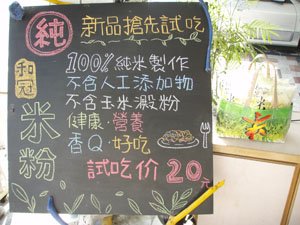 純
新品搶先試吃
和冠
米粉
100%純米製作
不含人工添加物
不含玉米澱粉
健康·營養
香Q·好吃
試吃价20元